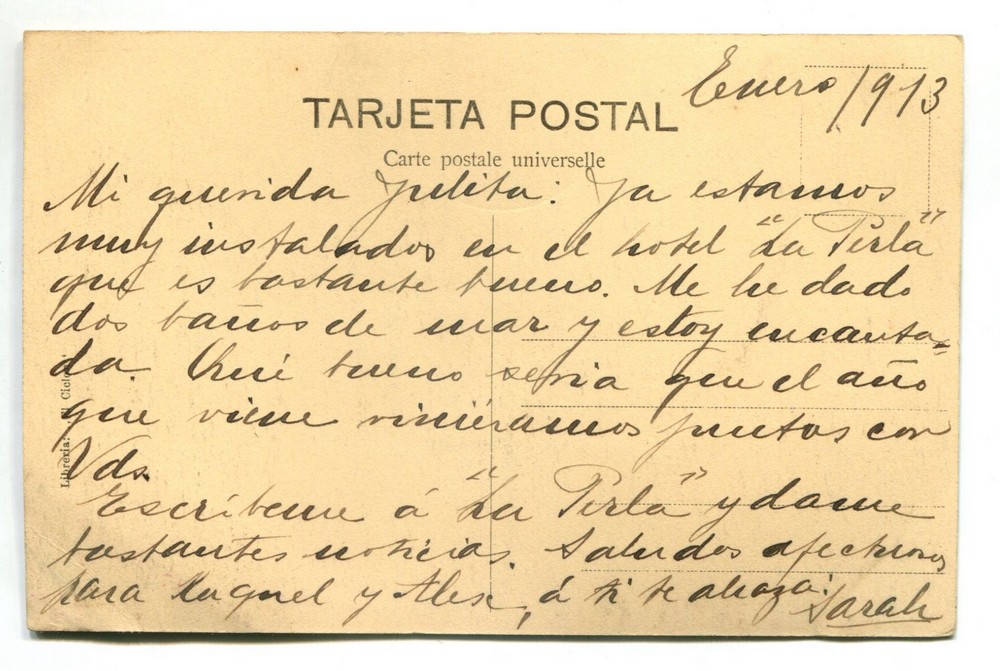 Enero/913
TARJETA POSTAL
Carte postale universelle
Mi querida Julita: Ya estamos
muy instalados en el hotel "La Perla"
que es bastante bueno. Me he dado
dos baños de mar y estoy encanta=
da. Qué bueno seria que el año
que viene viniéramos juntos con
Vds.
Escríbeme á "La Perla" y dame
bastantes noticias. Saludos afectuosos
para Raquel y Alex, á ti te abraza:
Sarah
Librería: "El Ciclo".